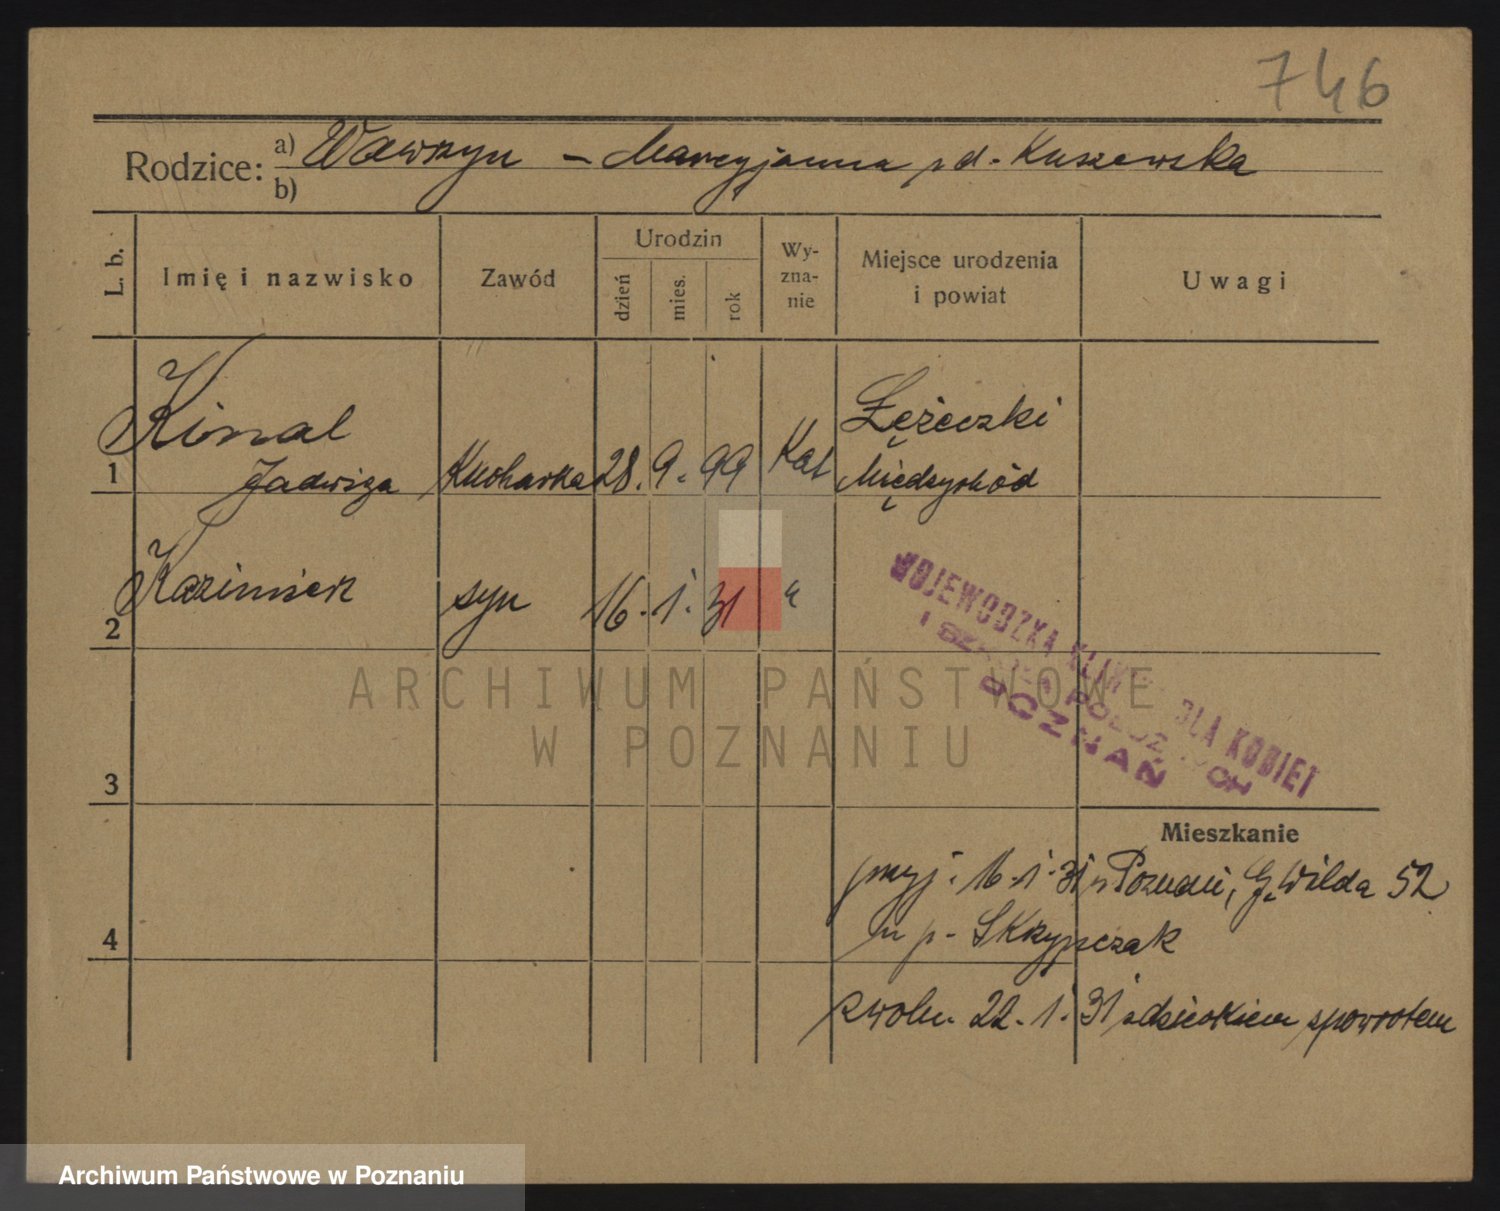 746
Rodzice: a) Wawrzyn – Marcyjanna z d. Kuszewska
b)
L. b. Imię i nazwisko Zawód Urodzin dzień mies. rok Wy-zna-nie Miejsce urodzenia i powiat Uwagi
1 Kinal Jadwiga Kucharka 28. 9. 99 Kat Łężeczki Międzychód
2 Kazimierz syn 16. 1. 31 "
WOJEWÓDZKA KLINIKA DLA KOBIET
I SZKOŁA POŁOŻNYCH
POZNAŃ
ARCHIWUM PAŃSTWOWE
W POZNANIU
3
Mieszkanie
przyj. 16. 1. 31 z Poznania, G. Wilda 52
4 u p. Skrzypczak
zwoln. 22. 1. 31 z dzieckiem spowrotem
Archiwum Państwowe w Poznaniu